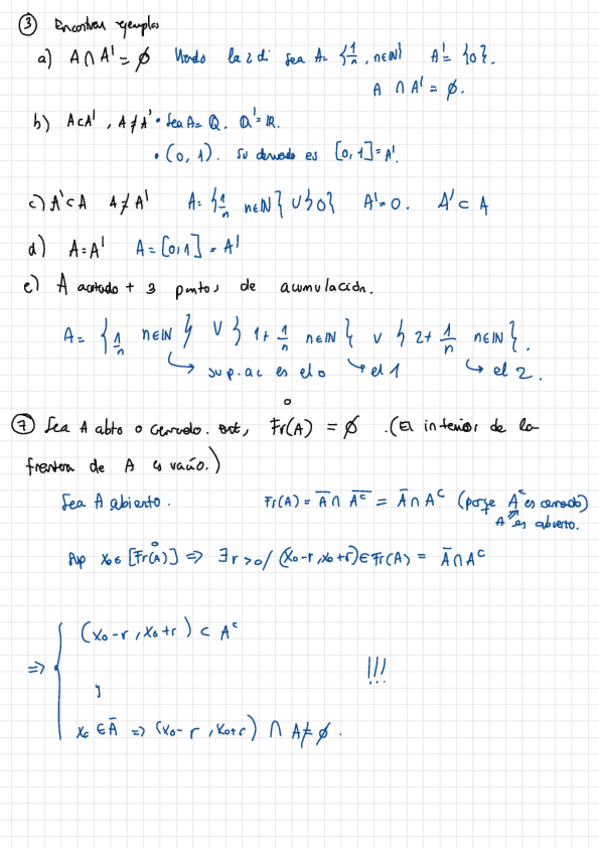 ③ Encontrar ejemplos
a) A ∩ A' = ∅ la 2 di sea A = {1/n, n∈ℕ} A' = {0}.
A ∩ A' = ∅.
b) A⊂A', A≠A' • Sea A = ℚ. ℚ' = ℝ.
• (0, 1). Su derivado es [0, 1] = A'.
c) A'⊂A A≠A' A = {1/n n∈ℕ} ∪ {0} A' = 0. A' ⊂ A
d) A = A' A = [0,1] = A'
e) A acotado + 3 puntos de acumulación.
A = {1/n n∈ℕ} ∪ {1 + 1/n n∈ℕ} ∪ {2 + 1/n n∈ℕ}.
↳ su p.ac es el 0 ↳ el 1 ↳ el 2.
⑦ Sea A abto o cerrado. Ent, Fr(A)° = ∅. (El interior de la
frontera de A es vacío.)
Sea A abierto. Fr(A) = A̅ ∩ A̅ᶜ = A̅ ∩ Aᶜ (porque Aᶜ es cerrado)
A es abierto.
Sup x₀ ∈ [Fr(A)]° ⇒ ∃ r>0 / (x₀-r, x₀+r) ∈ Fr(A) = A̅ ∩ Aᶜ
⇒ { (x₀-r, x₀+r) ⊂ Aᶜ
y !!!
x₀ ∈ A̅ ⇒ (x₀-r, x₀+r) ∩ A ≠ ∅.